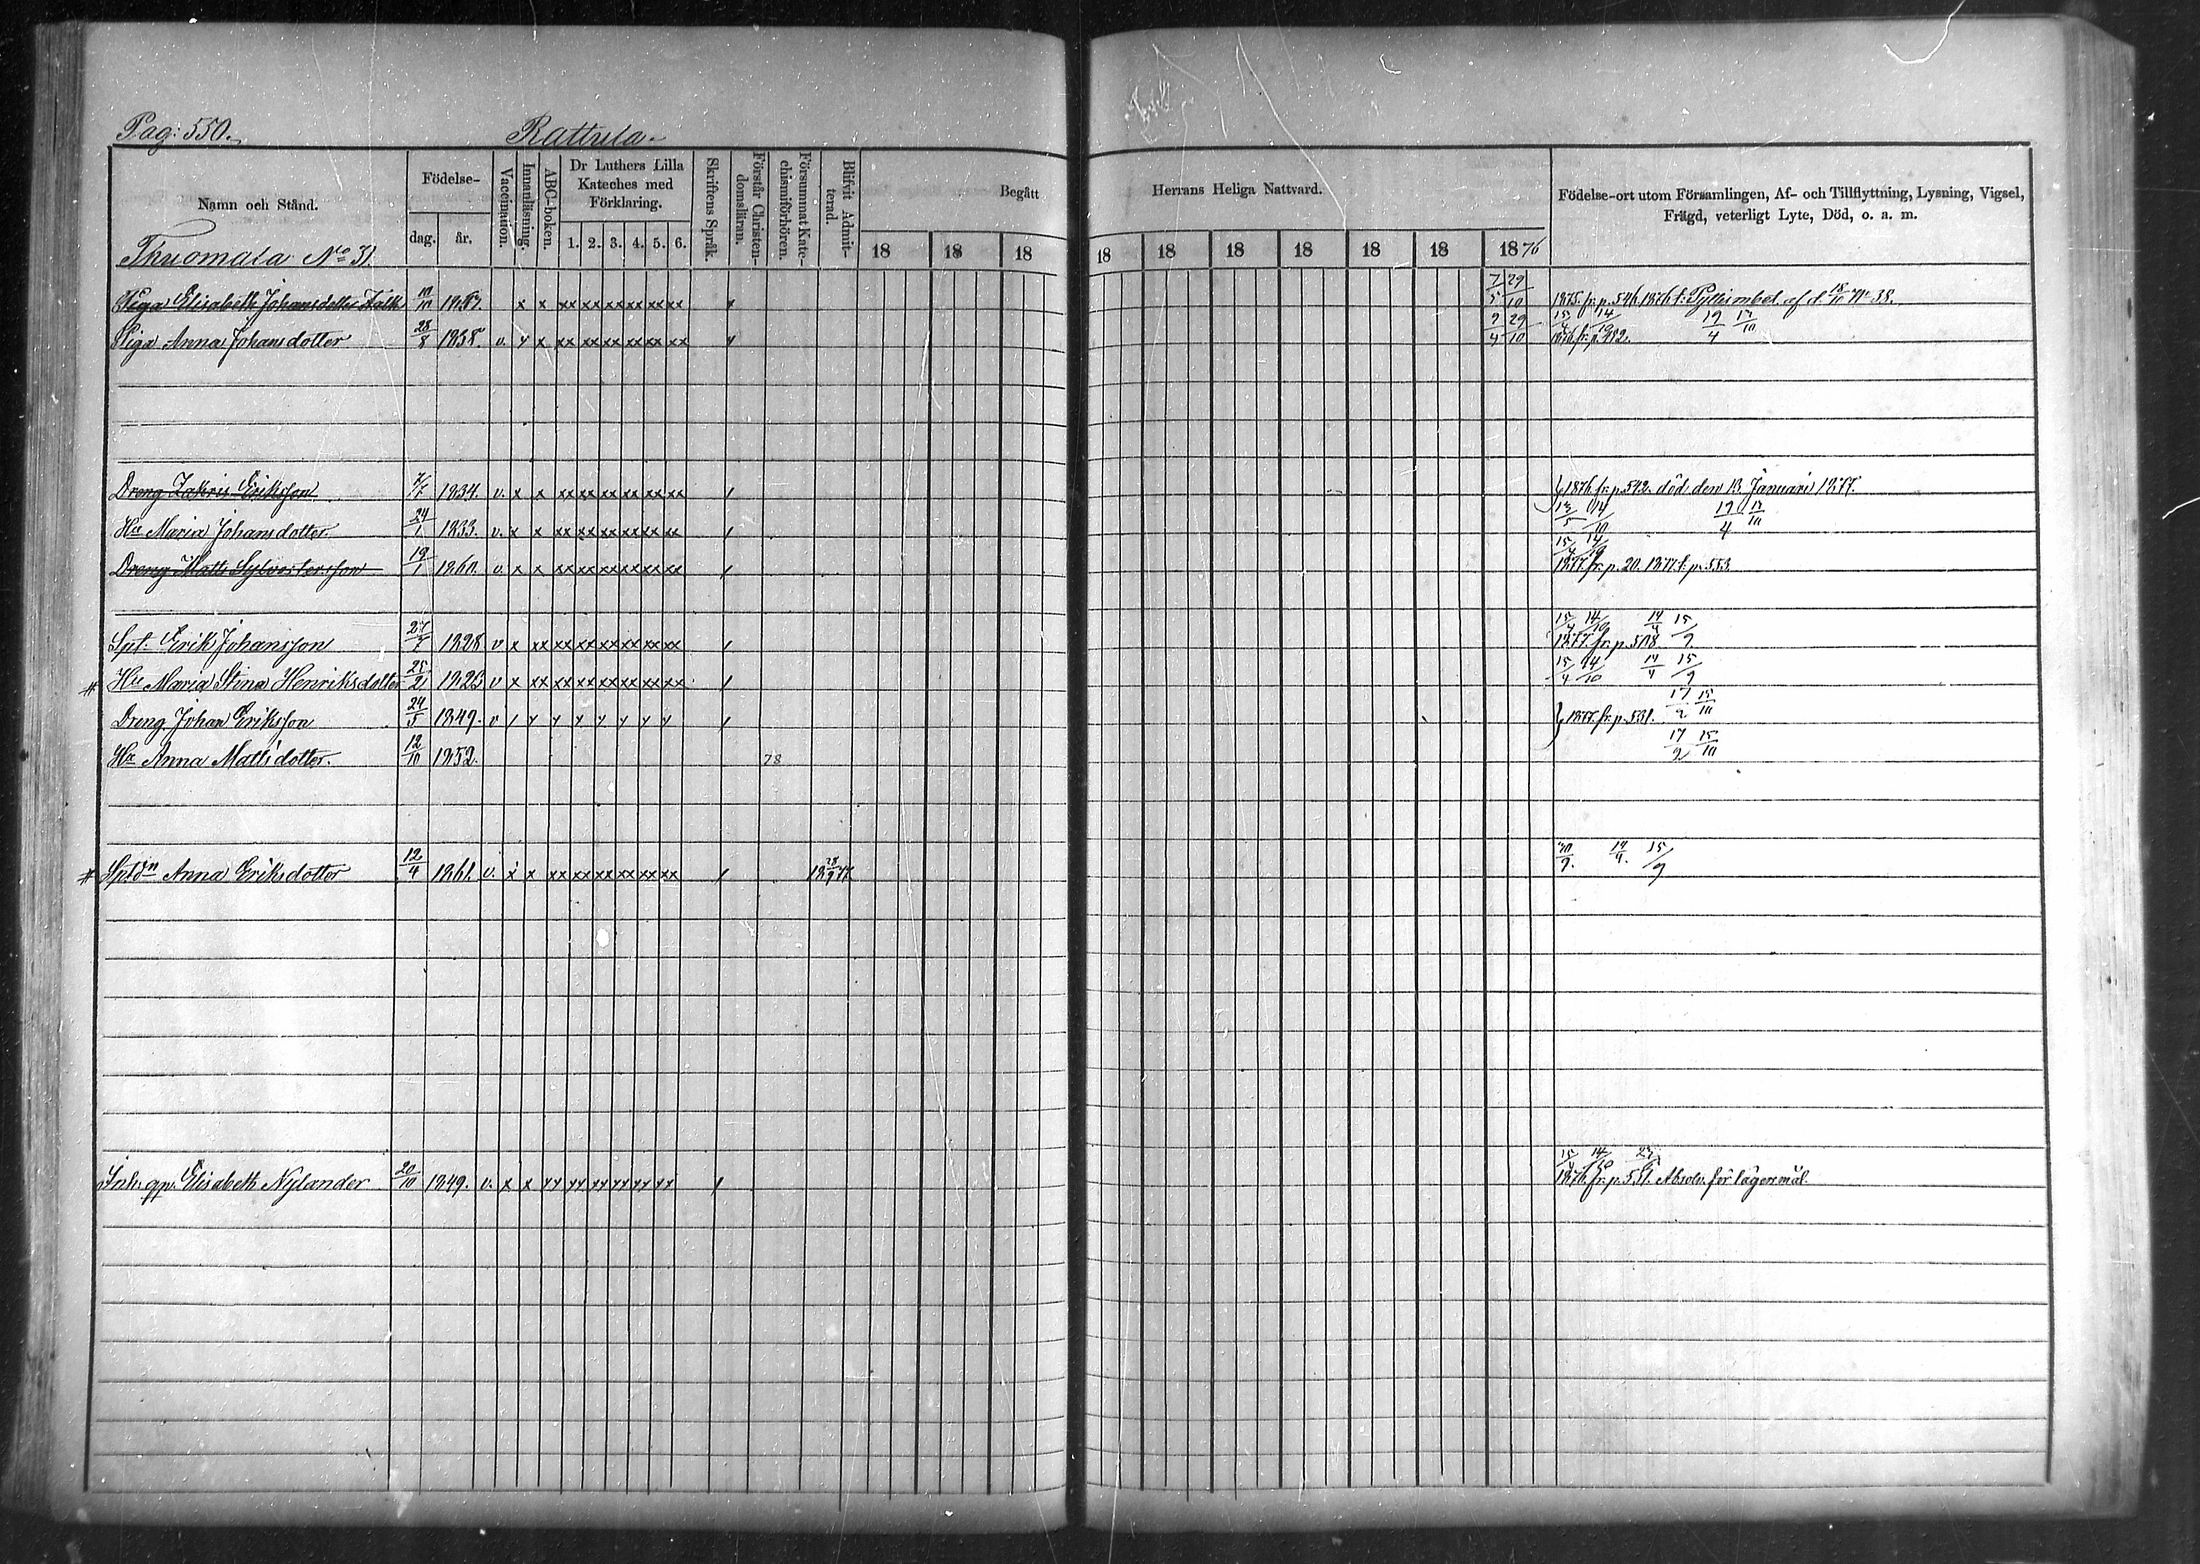 Pag: 550.
Rattula.
Namn och Stånd.
Födelse-
dag. år.
Vaccination.
Innanläsning.
ABC-boken.
Dr Luthers Lilla Kateches med Förklaring.
1. 2. 3. 4. 5. 6.
Skriftens Språk.
Förstår Christendomsläran.
Försummat Katechismiförhören.
Blifvit Admitterad.
Begått Herrans Heliga Nattvard.
18 18 18 18 18 18 18 18 18 1876
Födelse-ort utom Församlingen, Af- och Tillflyttning, Lysning, Vigsel,
Frägd, veterligt Lyte, Död, o. a. m.
Thuomala No 31.
Piga Elisabeth Johansdotter Falk 10/10 x x xx xx xx xx xx xx 7/5 29/10 1875 fr. p. 546. 1876 t:
Piga Anna Johansdotter 28/8 1858. v. x x xx xx xx xx xx xx 9/4 29/10 15/4 14/10 19/4 17/10
1876 fr. p.
Dreng Zakris Eriksson 1834. v. x x xx xx xx xx xx xx / 1876 fr. p. 542. död den 13 Januari 1877.
Hu Maria Johansdotter. 24/1 1833. v. x x xx xx xx xx xx xx / 13/5 14/10 19/4 17/10
Dreng Matts Sylvestersson 19/1 1860. v. x x xx xx xx xx xx xx / 15/4 14/10
1877 fr. p. 20. 1877 t: p. 553.
Spt. Erik Johansson 27/7 1828 v x xx xx xx xx xx xx xx / 15/4 14/10 14/4 15/9
1877 fr. p. 518
# Hu Maria Stina Henriksdotter 25/2 1823 v x xx xx xx xx xx xx xx / 15/4 14/10 14/4 15/9
Dreng Johan Eriksson 24/5 1849. v / 17/2 15/10
1877 fr. p. 531.
Hu Anna Mattsdotter. 12/10 1852. 78 17/2 15/10
# Sptdn Anna Eriksdotter 12/4 1861. v. x x xx xx xx xx xx xx / 18 28/9 77 30/9. 14/4. 15/9
Inh. qp. Elisabeth Nylander 20/10 1849. v. x x xx xx xx xx xx xx / 15/4 14/10
1876 fr. p. 551. Absolv. för lägersmål.